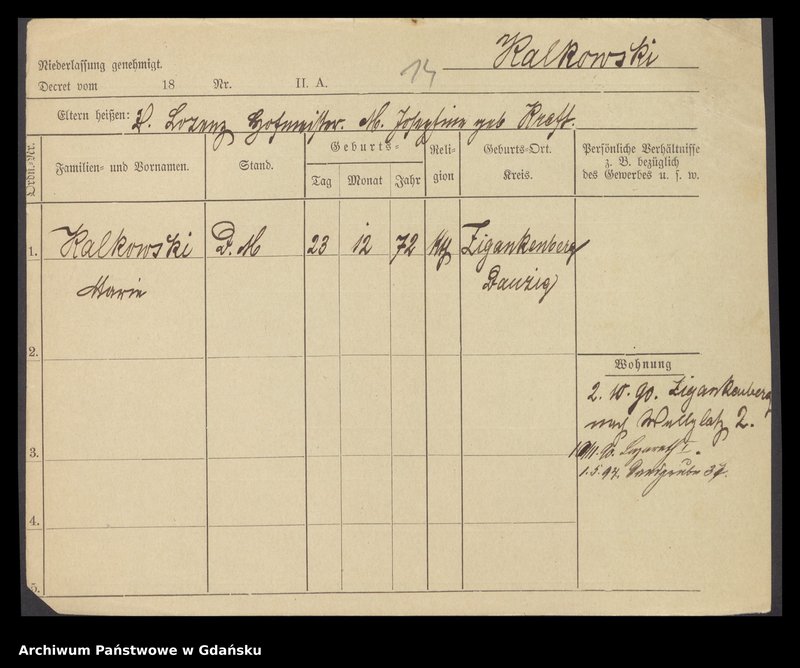 Kalkowski
14
Niederlassung genehmigt.
Decret vom 18 Nr. II. A.
Eltern heißen: V. Lorenz Hofmeister. M. Josephine geb Kreft.
Ordn.-Nr.
Familien- und Vornamen.
Stand.
Geburts-
Tag Monat Jahr
Religion
Geburts-Ort.
Kreis.
Persönliche Verhältnisse
z. B. bezüglich
des Gewerbes u. s. w.
1. Kalkowski D. M 23 12 72 kth Zigankenberg
Marie Danzig
2.
Wohnung
2. 10. 90. Zigankenberg
nach Wallplatz 2.
3.
Lazareth
1. 5. 94. 37.
4.
5.
Archiwum Państwowe w Gdańsku